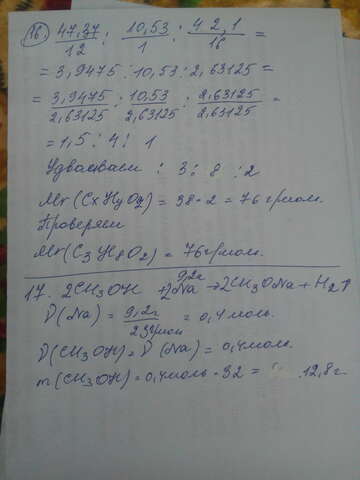 16. 47,37/12 : 10,53/1 : 42,1/16 =
= 3,9475 : 10,53 : 2,63125 =
= 3,9475/2,63125 : 10,53/2,63125 : 2,63125/2,63125 =
= 1,5 : 4 : 1
Удваиваем : 3 : 8 : 2
Mr(CxHyOz) = 38·2 = 76 г/моль.
Проверяем
Mr(C3H8O2) = 76 г/моль.
9,2г
17. 2CH3OH + 2Na → 2CH3ONa + H2↑
ν(Na) = 9,2г/23г/мол = 0,4 моль.
ν(CH3OH) = ν(Na) = 0,4 моль.
m(CH3OH) = 0,4 моль · 32 = 12,8 г.